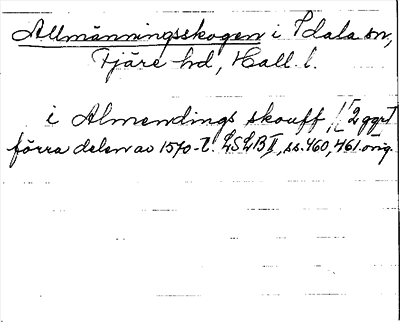 Allmänningsskogen i Idala sn,
Fjäre hd, Hall. l.
i Almendings skouff, [2 ggr]
förra delen av 1570-t. LSLB II, ss. 460, 461. orig.